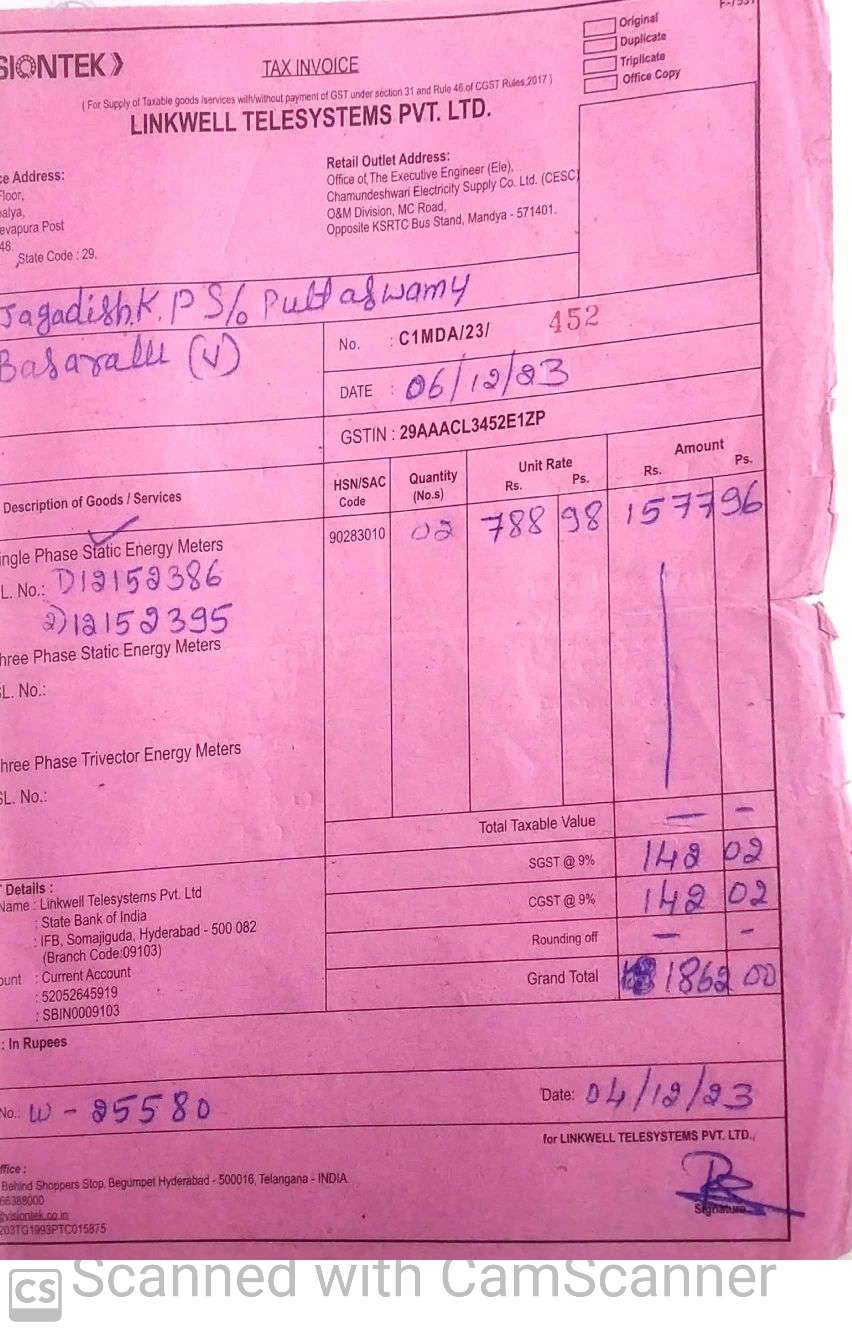 SIONTEK
TAX INVOICE
Original
Duplicate
Triplicate
Office Copy
( For Supply of Taxable goods /services with/without payment of GST under section 31 and Rule 46 of CGST Rules,2017 )
LINKWELL TELESYSTEMS PVT. LTD.
ce Address:
Floor,
alya,
evapura Post
48.
State Code : 29.
Retail Outlet Address:
Office of The Executive Engineer (Ele),
Chamundeshwari Electricity Supply Co. Ltd. (CESC)
O&M Division, MC Road,
Opposite KSRTC Bus Stand, Mandya - 571401.
Jagadish.K.P S/o Puttaswamy
Basaralu (V)
No. : C1MDA/23/ 452
DATE : 06/12/23
GSTIN : 29AAACL3452E1ZP
Description of Goods / Services
HSN/SAC Code
Quantity (No.s)
Unit Rate Rs. Ps.
Amount Rs. Ps.
ingle Phase Static Energy Meters 90283010 02 788 98 1577 96
L. No.: 1) 12152386
2) 12152395
hree Phase Static Energy Meters
SL. No.:
hree Phase Trivector Energy Meters
SL. No.:
Total Taxable Value — -
SGST @ 9% 142 02
CGST @ 9% 142 02
Rounding off — -
Grand Total 1862 00
Details :
Name : Linkwell Telesystems Pvt. Ltd
: State Bank of India
: IFB, Somajiguda, Hyderabad - 500 082
(Branch Code:09103)
ount : Current Account
: 52052645919
: SBIN0009103
: In Rupees
No.: W - 25580
Date: 04/12/23
for LINKWELL TELESYSTEMS PVT. LTD.,
Signature
ffice :
Behind Shoppers Stop, Begumpet Hyderabad - 500016, Telangana - INDIA
66388000
@visiontek.co.in
203TG1993PTC015875
CS Scanned with CamScanner